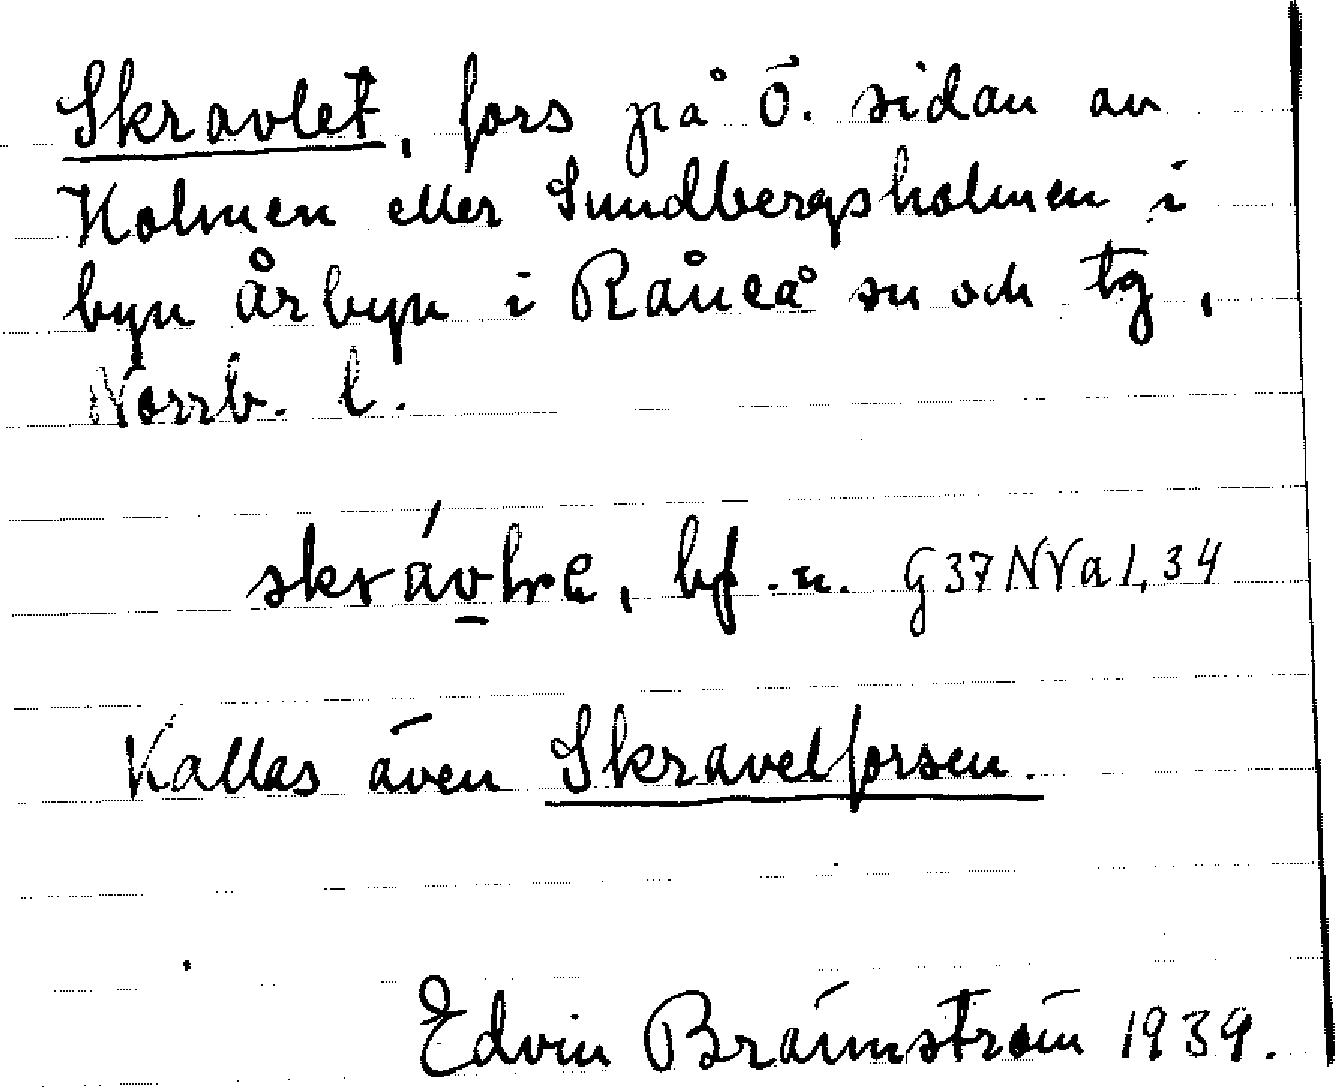 Skravlet, fors på Ö. sidan av
Holmen eller Sundbergsholmen i
byn Årbyn i Råneå sn och tg,
Norrb. l.
bf. n. G37NVa1,34
Kallas även Skravelforsen.
Edvin Brännström 1939.